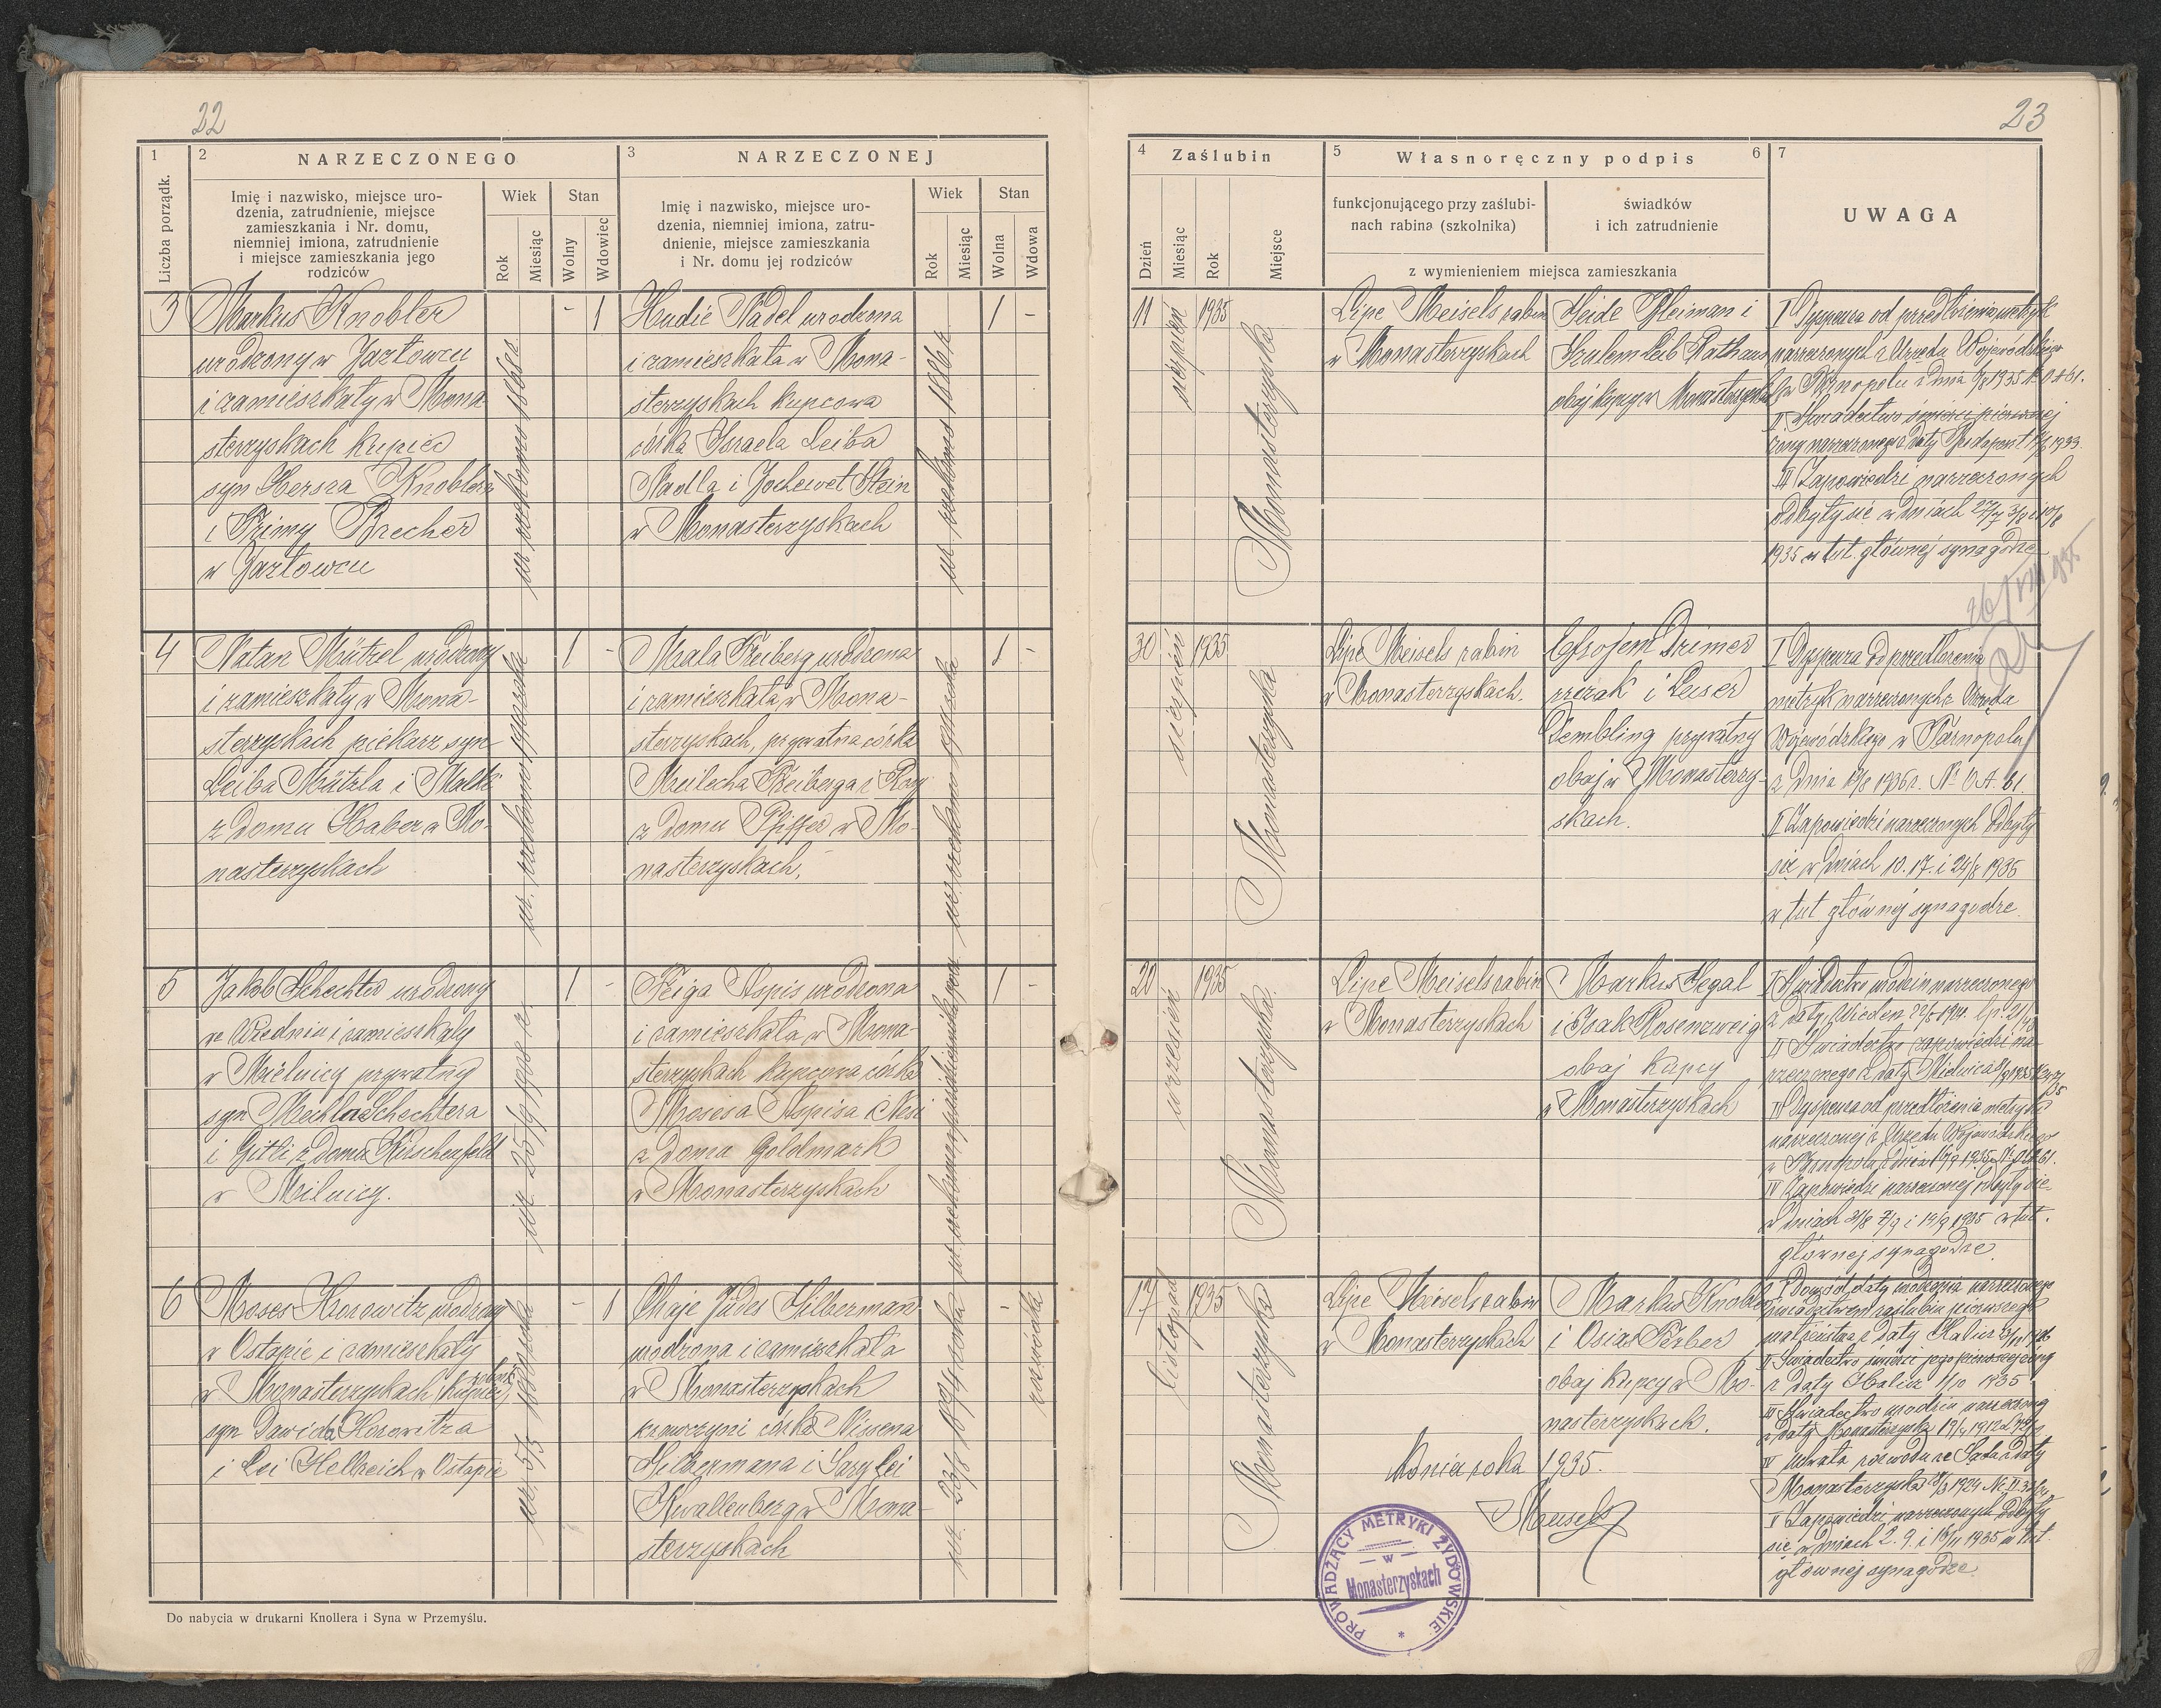 22
1
2
NARZECZONEGO
3
NARZECZONEJ
Liczba porządk.
Imię i nazwisko, miejsce uro-
dzenia, zatrudnienie, miejsce
zamieszkania i Nr. domu,
niemniej imiona, zatrudnienie
i miejsce zamieszkania jego
rodziców
Wiek
Stan
Rok
Miesiąc
Wolny
Wdowiec
Imię i nazwisko, miejsce uro-
dzenia, niemniej imiona, zatru-
dnienie, miejsce zamieszkania
i Nr. domu jej rodziców
Wiek
Stan
Rok
Miesiąc
Wolna
Wdowa
3
Markus Knobler
urodzony w Jazłowcu
i zamieszkały w Mona
sterzyskach kupiec
syn Hersza Knoblera
i Frimy Brecher
w Jazłowcu
- 1
Hudie Nadel urodzona
i zamieszkała w Mona-
sterzyskach kupcowa
córka Israela Leiba
Nadla i Jochewet Stein
w Monasterzyskach
1 -
4
Natan Mützel urodzony
i zamieszkały w Mona-
sterzyskach piekarz syn
Leiba Mützla i Malki
z domu Haber w Mo-
nasterzyskach
1 -
Mala Freiberg urodzona
i zamieszkała w Mona-
sterzyskach, prywatna córka
Meilecha Freiberga i Rozy
z domu Pfiffer w Mo-
nasterzyskach,
1 -
5
Jakob Schechter urodzony
we Wiedniu i zamieszkały
w Mielnicy prywatny
syn Mechla Schechtera
i Gitli z domu Hirschenfeld
w Milnicy.
1 -
Feiga Aspis urodzona
i zamieszkała w Mona-
sterzyskach kupcowa córka
Mosesa Aspisa i Nesi
z domu Goldmark
w Monasterzyskach
1 -
6
Moses Horowitz urodzony
w Ostapie i zamieszkały
w Monasterzyskach kupiec,
syn Dawida Horowitza
i Lei Hellreich w Ostapie
- 1
Chaje Judes Silberman
urodzona i zamieszkała
w Monasterzyskach
krawczyni córka Nissena
Silbermana i Sary Lei
Kwallenberg w Mona-
sterzyskach
-
rozwódka
Do nabycia w drukarni Knollera i Syna w Przemyślu.
23
4
Zaślubin
5
Własnoręczny podpis
6
7
Dzień
Miesiąc
Rok
Miejsce
funkcjonującego przy zaślubi-
nach rabina (szkolnika)
świadków
i ich zatrudnienie
z wymienieniem miejsca zamieszkania
UWAGA
11
sierpień
1935
Monasterzyska
Lipe Meisels rabin
w Monasterzyskach
Seide Gleiman i
Szulem Leib Rathaus
obaj kupcy w Monasterzyskach
I Dyspensa od przedłożenia metryk
narzeczonych z Urzędu Wojewódzkiego
w Tarnopolu z dnia 9/8 1935 N. OA 61.
II Świadectwo śmierci pierwszej
żony narzeczonego z daty Budapeszt 1933.
III Zapowiedzi narzeczonych
odbyły się w dniach 27/7 3/8 i 10/8
1935 w tut. głównej synagodze
30
sierpień
1935
Monasterzyska
Lipe Meisels rabin
w Monasterzyskach.
Efrojem Drimer
rzezak i Leiser
Dembling prywatny
obaj w Monasterzy-
skach.
I Dyspensa do przedłożenia
metryk narzeczonych z Urzędu
Wojewódzkiego w Tarnopolu
II Zapowiedzi narzeczonych odbyły
się w dniach 10. 17. i 24/8 1935
w tut głównej synagodze
20
wrzesień
1935
Monasterzyska
Lipe Meisels rabin
w Monasterzyskach
Markus Segal
i Isak Rosenzweig
obaj kupcy
w Monasterzyskach
I Świadectwo urodzin narzeczonego
II Świadectwo zapowiedzi na
III Dyspensa od przedłożenia metryki
narzeczonej z Urzędu Wojewódzkiego
IV Zapowiedzi narzeczonej odbyły się
w dniach 31/8 7/9 i 14/9 1935 w tut.
głównej synagodze.
17
listopad
1935
Monasterzyska
Lipe Meisels rabin
w Monasterzyskach
Markus Knobler
i Osias Ferber
obaj kupcy w Mo-
nasterzyskach.
II Świadectwo śmierci jego pierwszej żony
z daty Halicz 1/10 1935
III Świadectwo urodzin narzeczonej
V Zapowiedzi narzeczonych odbyły
się w dniach 2. 9. i 16/11 1935 w tut.
głównej synagodze.
roku 1935.
Meisels
PROWADZĄCY METRYKI ŻYDOWSKIE
w
Monasterzyskach